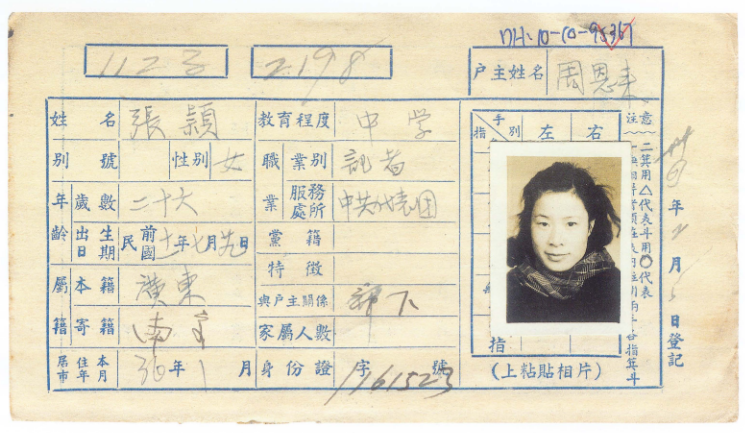 DH:10-10-95367
1123 2198
户主姓名 周恩来
姓名 張穎 教育程度 中学
別號 性別 女 職業別 記者
年齡 歲數 二十六 服務處所 中共代表團
出生日期 民國前 年七月 日 黨籍
特徵
屬籍 本籍 廣東 與戶主關係 部下
寄籍 南京 家屬人數
居住本市年月 36年1月 身份證 字 1161523 號
手別 左 右
指別
指
(上粘貼相片)
注意
二箕用△代表斗用○代表
年 月 日登記